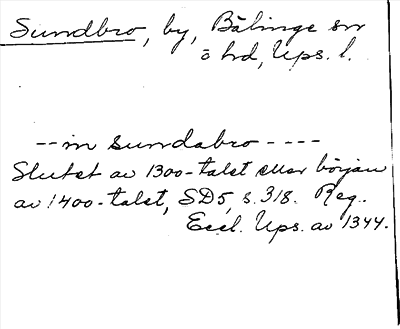 Sundbro, by, Bälinge sn
ö hd, Ups. l.
-- in sundabro ----
Slutet av 1300-talet eller början
av 1400-talet, SD5, s. 318. Reg.
Eccl. Ups. av 1344.